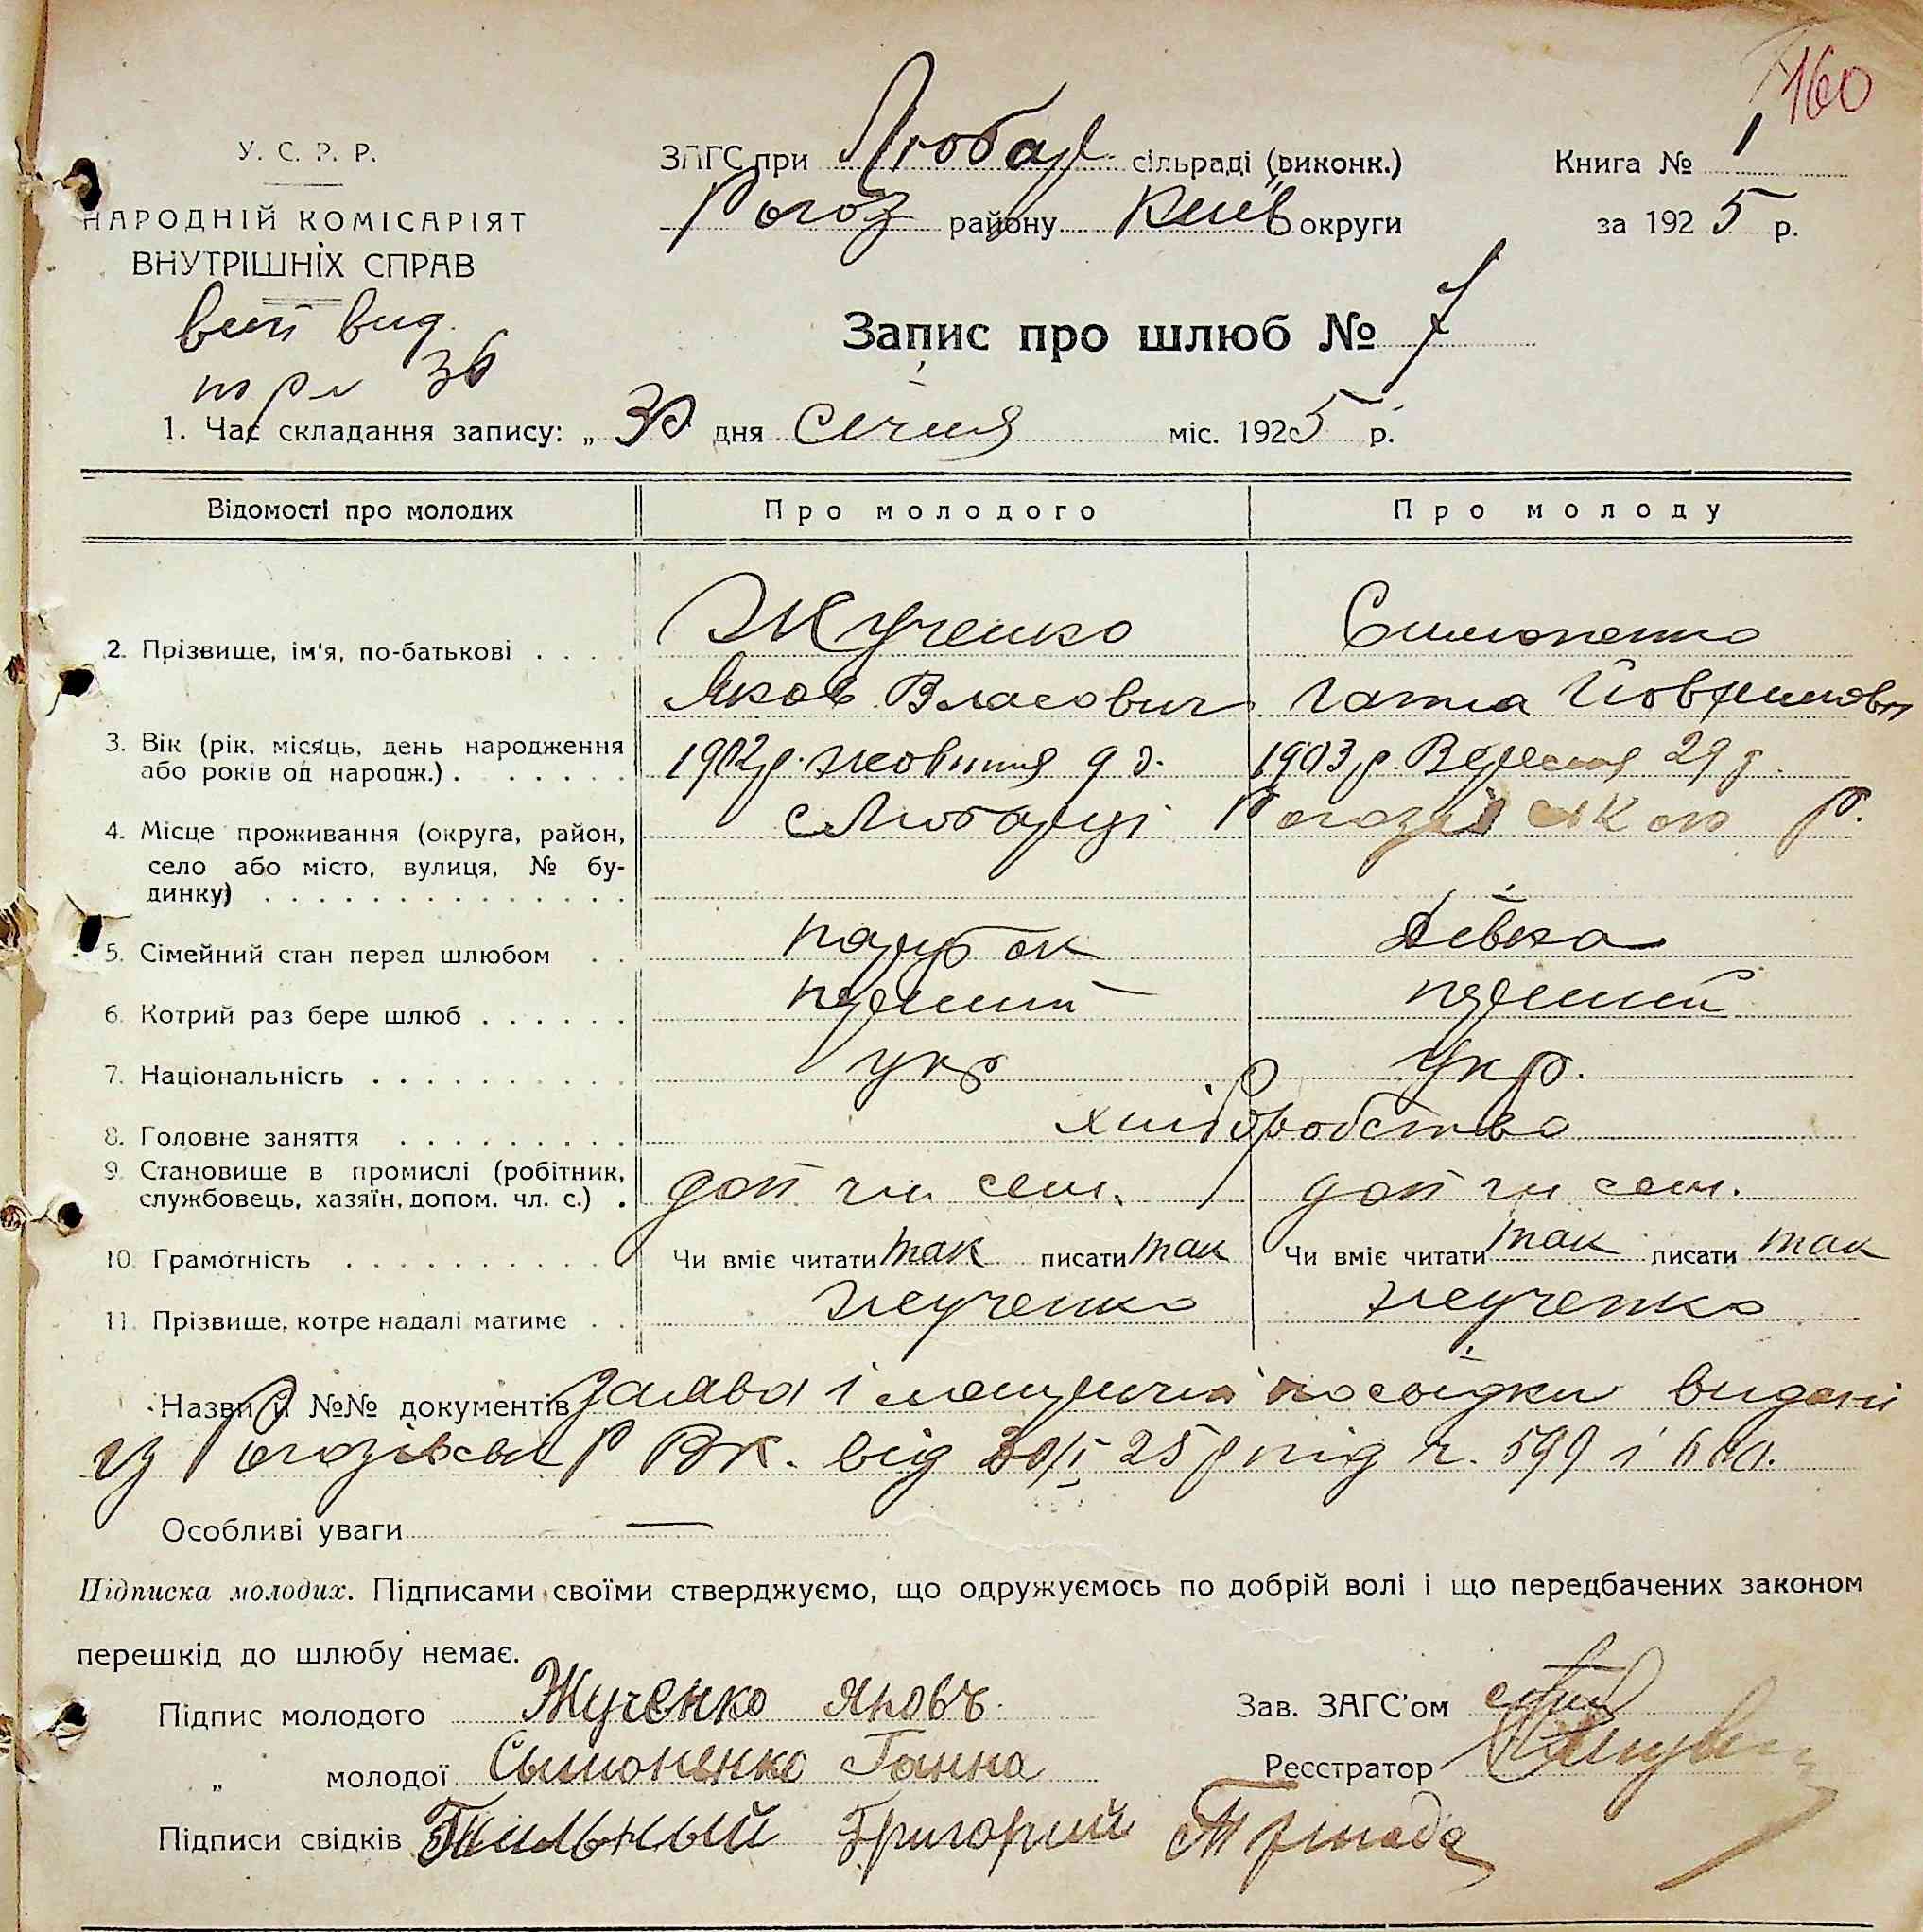 160
У. С. Р. Р.
НАРОДНІЙ КОМІСАРІЯТ
ВНУТРІШНІХ СПРАВ
ЗАГС при Любар. сільраді (виконк.)
Рогоз району Київ округи
Книга № 1
за 1925 р.
вид.
36
Запис про шлюб № 7
1. Час складання запису: „ 30 дня січня міс. 1925 р.
Відомості про молодих Про молодого Про молоду
2. Прізвище, ім'я, по-батькові . . . . Жученко Симоненко
Яков Власович Ганна
3. Вік (рік, місяць, день народження 1902 р. жовтня 9 д. 1903 р. Вересня 29 д.
або років од народж.) . . . . . . .
4. Місце проживання (округа, район, с Любарці Рогозівського р.
село або місто, вулиця, № бу-
динку) . . . . . . . . . . . . . . .
5. Сімейний стан перед шлюбом . . парубок дівка
6. Котрий раз бере шлюб . . . . . . перший перший
7. Національність . . . . . . . . . . укр укр.
8. Головне заняття . . . . . . . . . хліборобство
9. Становище в промислі (робітник, доп чл сем. доп чл сем.
службовець, хазяїн, допом. чл. с.) .
10. Грамотність . . . . . . . . . . . Чи вміє читати так писати так Чи вміє читати так писати так
11. Прізвище, котре надалі матиме . . Жученко Жученко
Назви й №№ документів Заява і посвідки видані
із Рогозівськ Р В К. від 30/I 25 р під ч. 599 і 600.
Особливі уваги —
Підписка молодих. Підписами своїми стверджуємо, що одружуємось по добрій волі і що передбачених законом
перешкід до шлюбу немає.
Підпис молодого Жученко Яковъ
Зав. ЗАГС'ом
„ молодої Сымоненко Ганна
Реєстратор
Підписи свідків Григорий